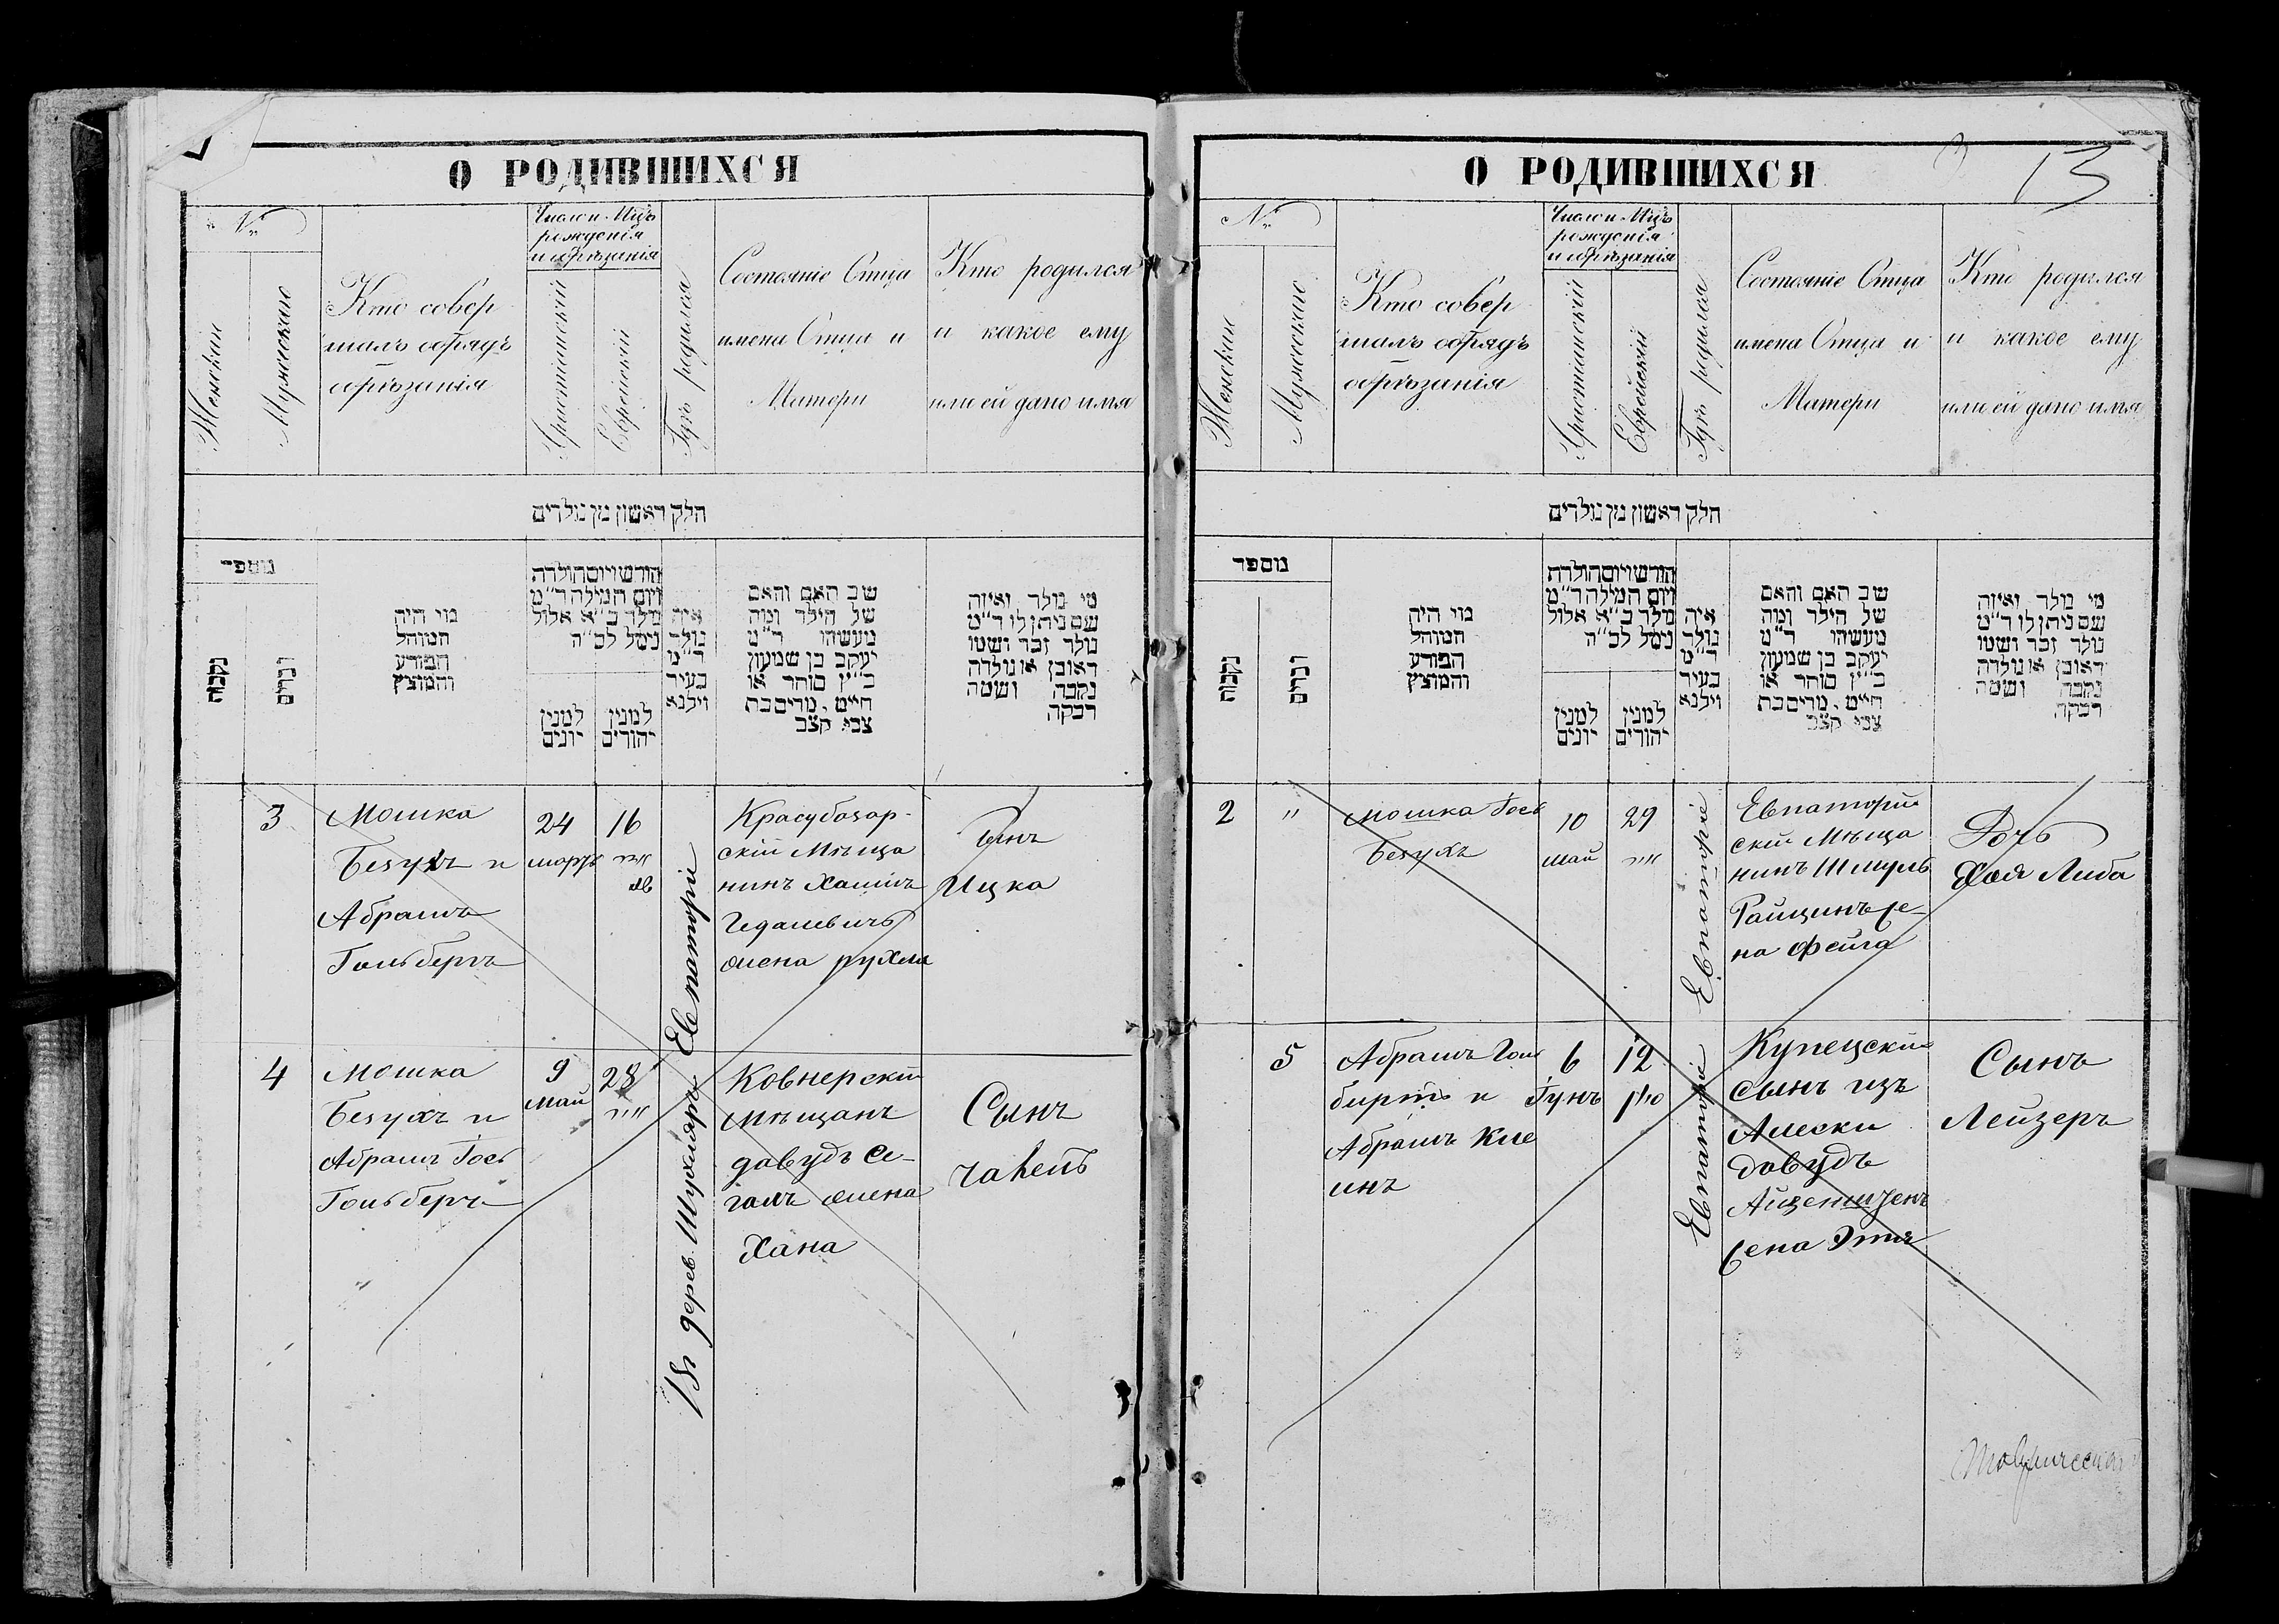 О РОДИВШИХСЯ
№
Женскіи
Мужескаго
Кто совер
шалъ обрядъ
обрѣзанія
Число и Мцъ
рожденія
и обрѣзанія
Христіанскій
Еврейскій
Гдѣ родился
Состояніе Отца
имена Отца и
Матери
Кто родился
и какое ему
или ей дано имя
חלק ראשון מן נולדים
מספר
נקבה
זכרים
מי היה
המוהל
הפורע
והמוצץ
חודש ויום הולדת
ויום המילה ד״מ
נולד כ״א אלול
נימל לכ״ה
למנין
יונים
למנין
יהודים
איה
נולד
ד״מ
בעיר
וילנא
שב האם והאם
של הילד ומה
מעשהו ד״מ
יעקב בן שמעון
כ״ץ סוחר או
חייט, מרים בת
צבי קצב
מי נולד ואיזה
שם ניתן לו ד״מ
נולד זכר ושמו
ראובן או נולדה
נקבה ושמה
רבקה
3
Мошка
Безухъ и
Абрамъ
Гольбергъ
24
мартъ
16
Евпаторіе
Красубазар-
скій Мѣща
нинъ Хаимъ
Гедалевичъ
жена рухля
Сынъ
Ицка
4
Мошка
Безухъ и
Абрамъ Гось
Гольбергъ
9
Май
28
אייר
Въ дерев.
Ковнерскій
мѣщанъ
давудъ Се-
галъ жена
Хана
Сынъ
О РОДИВШИХСЯ
13
№
Женскіи
Мужескаго
Кто совер
шалъ обрядъ
обрѣзанія
Число и Мцъ
рожденія
и обрѣзанія
Христіанскій
Еврейскій
Гдѣ родился
Состояніе Отца
имена Отца и
Матери
Кто родился
и какое ему
или ей дано имя
חלק ראשון מן נולדים
מספר
נקבה
זכרים
מי היה
המוהל
הפורע
והמוצץ
חודש ויום הולדת
ויום המילה ד״מ
נולד כ״א אלול
נימל לכ״ה
למנין
יונים
למנין
יהודים
איה
נולד
ד״מ
בעיר
וילנא
שב האם והאם
של הילד ומה
מעשהו ד״מ
יעקב בן שמעון
כ״ץ סוחר או
חייט, מרים בת
צבי קצב
מי נולד ואיזה
שם ניתן לו ד״מ
נולד זכר ושמו
ראובן או נולדה
נקבה ושמה
רבקה
2
"
мошка Гось
Безухъ
10
май
29
אייר
Евпаторіе
Евпаторій
скій Мѣща
нинъ Шмуль
Райцинъ же-
на Фейга
Дочь
Хая Либа
5
Абрамъ Голь
бирть и
Абрамъ Кле
инъ
6
Іунъ
12
סיון
Евпаторіе
Купецскій
сынъ изъ
Алески
Давудъ
жена Этля
Сынъ
Лейзеръ